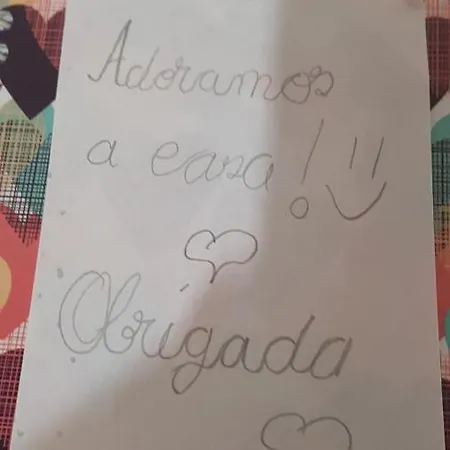 Adoramos
a casa!
Obrigada